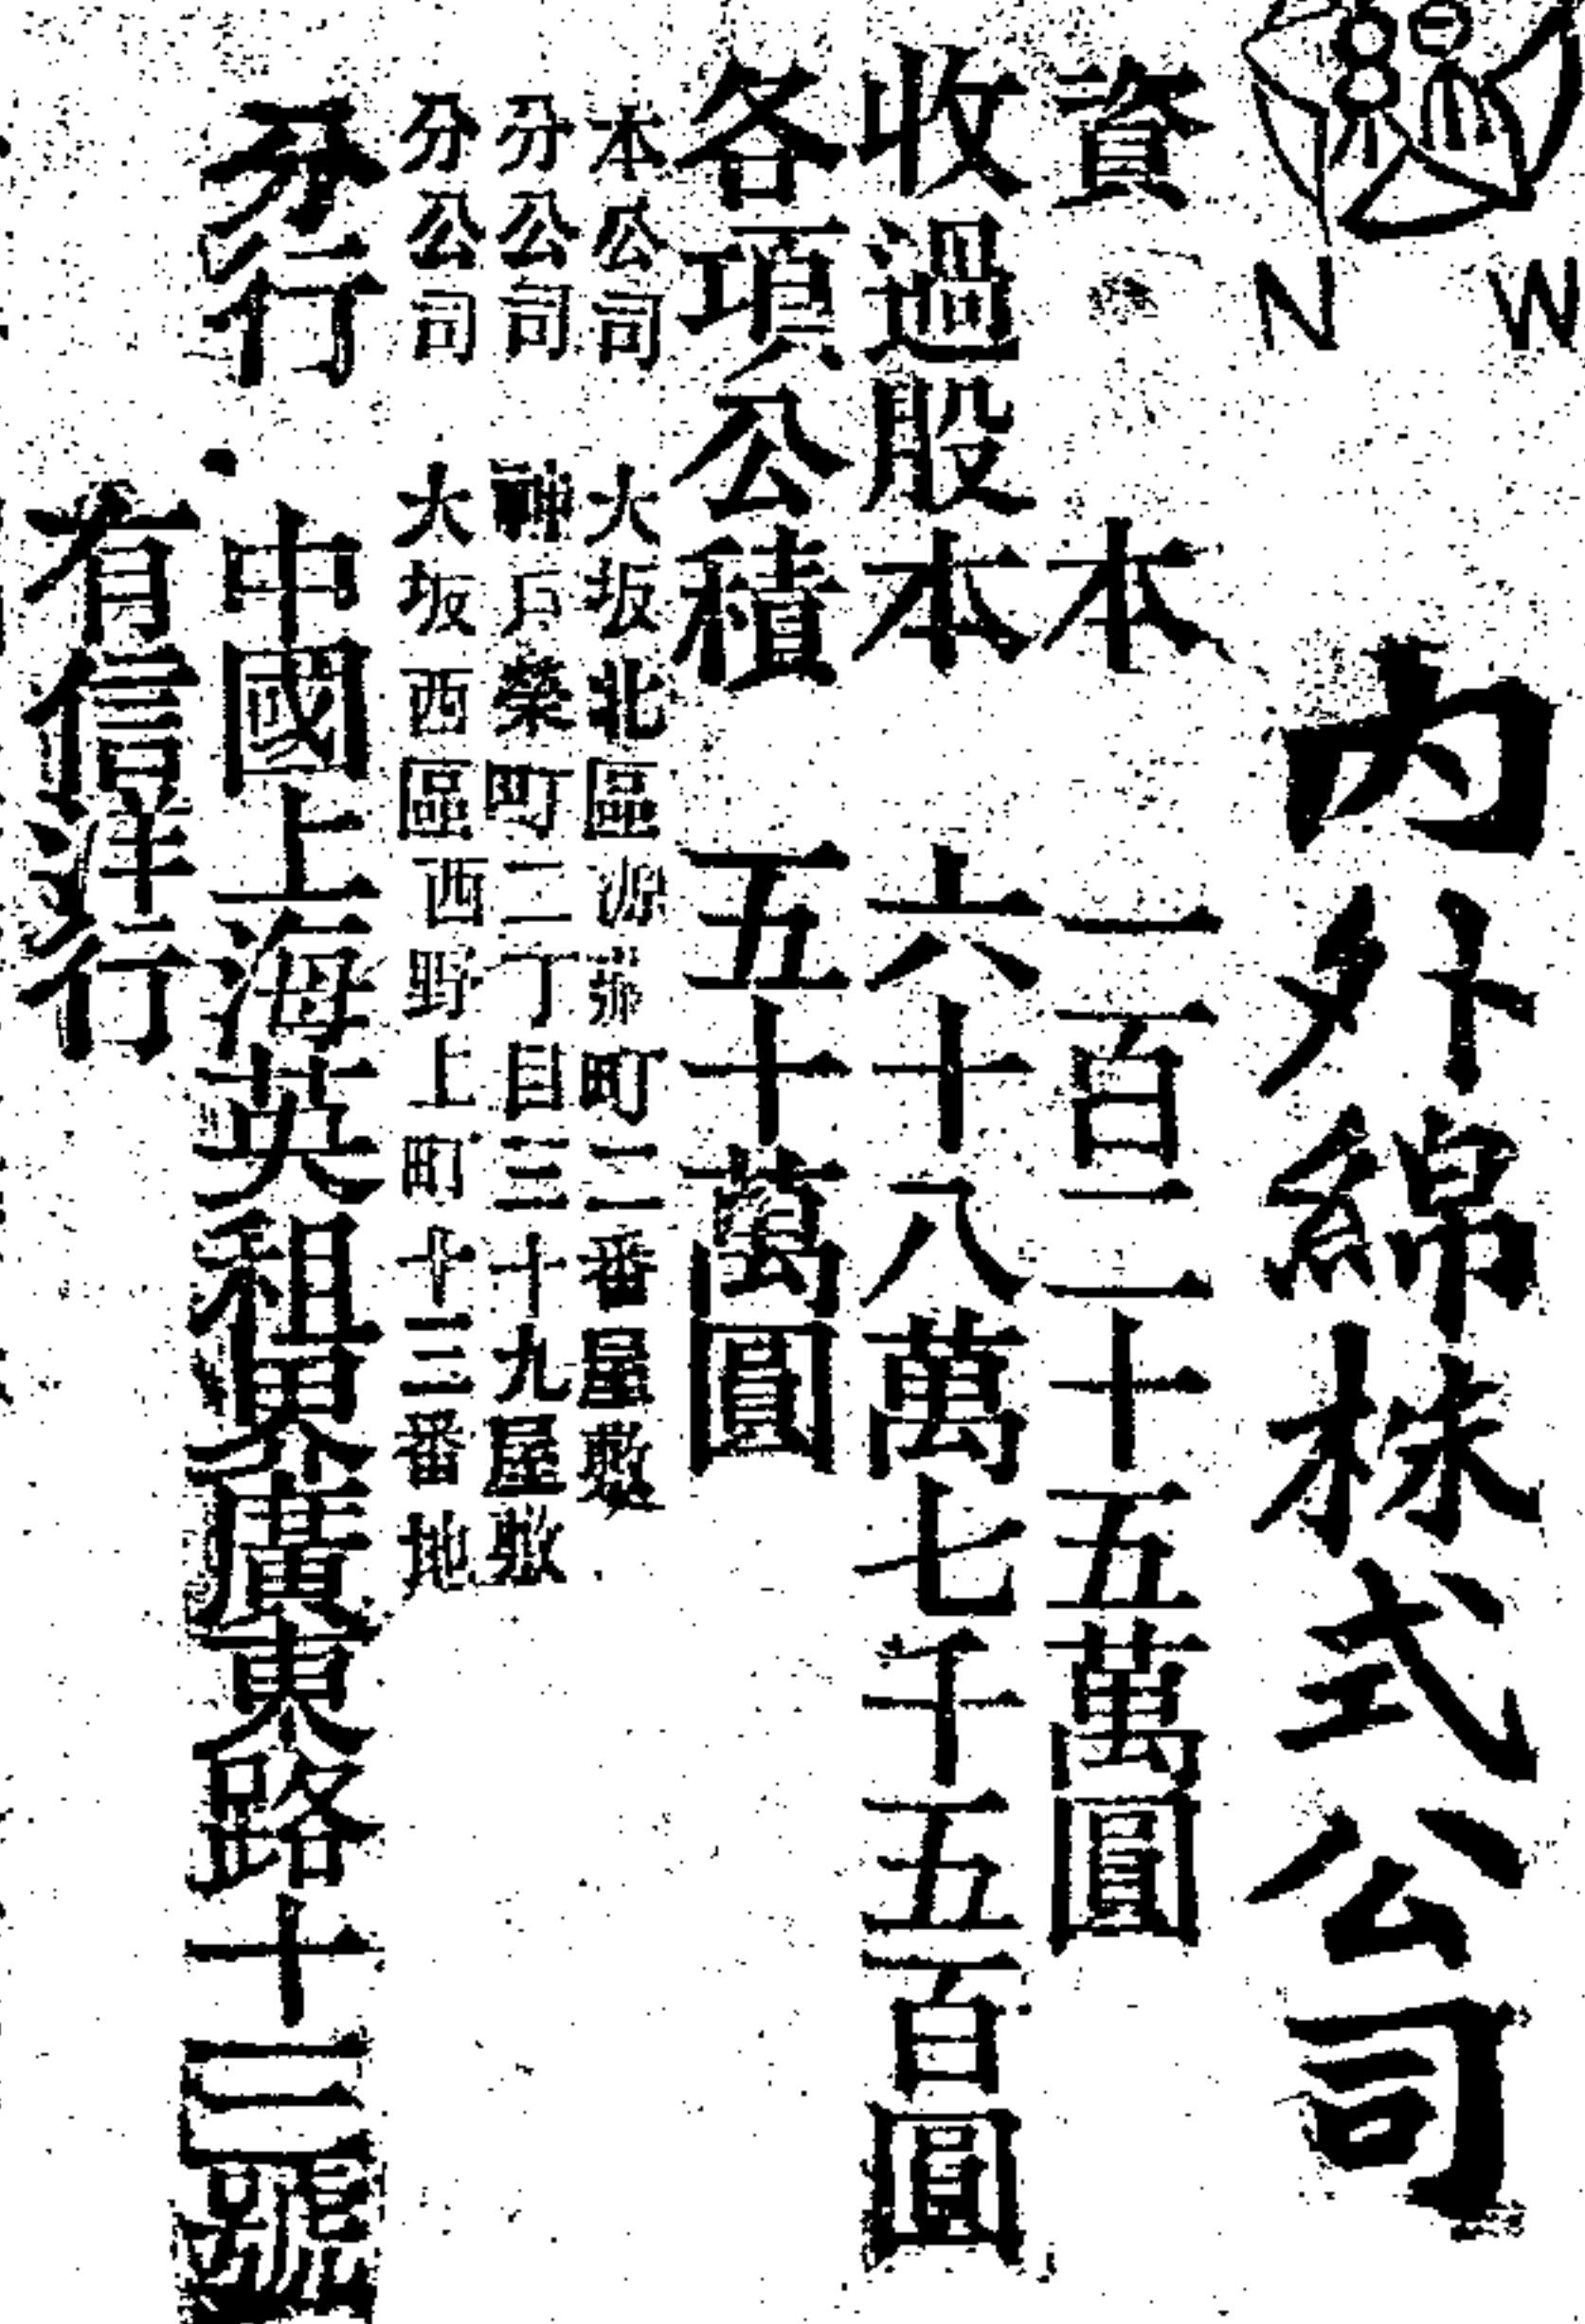 N W
內外綿株式公司
資本 一百二十五萬圓
收過股本 六十八萬七千五百圓
各項公積 五十萬圓
本公司 大坂北區源藏町二番屋敷
分公司 神戶榮町二丁目三十九屋敷
分公司 大坂西區西野上町十三番地
分行 中國上海英租界廣東路十三號
有信洋行